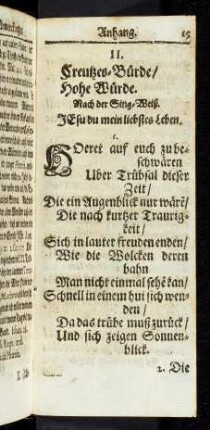 Anhang. 15
II.
Creutzes-Bürde/
Hohe Würde.
Nach der Sing-Weiß.
JEsu du mein liebstes Leben.
1.
HOeret auf euch zu be-
schwären
Uber Trübsal dieser
Zeit/
Die ein Augenblick nur wäre/
Die nach kurtzer Traurig-
keit/
Sich in lauter freuden enden/
Wie die Wolcken deren
bahn
Man nicht einmal sehē kan/
Schnell in einem hui sich wen-
den/
Da das trübe muß zurück/
Und sich zeigen Sonnen-
blick.
2. Die